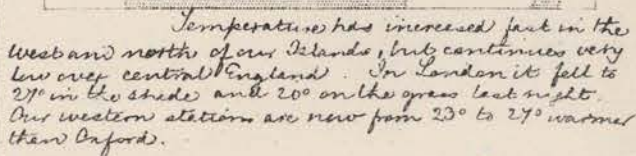 Temperature has increased fast in the
west and north of our Islands, but continues very
low over central England. In London it fell to
27° in the shade and 20° on the grass last night.
Our western stations are now from 23° to 27° warmer
than Oxford.